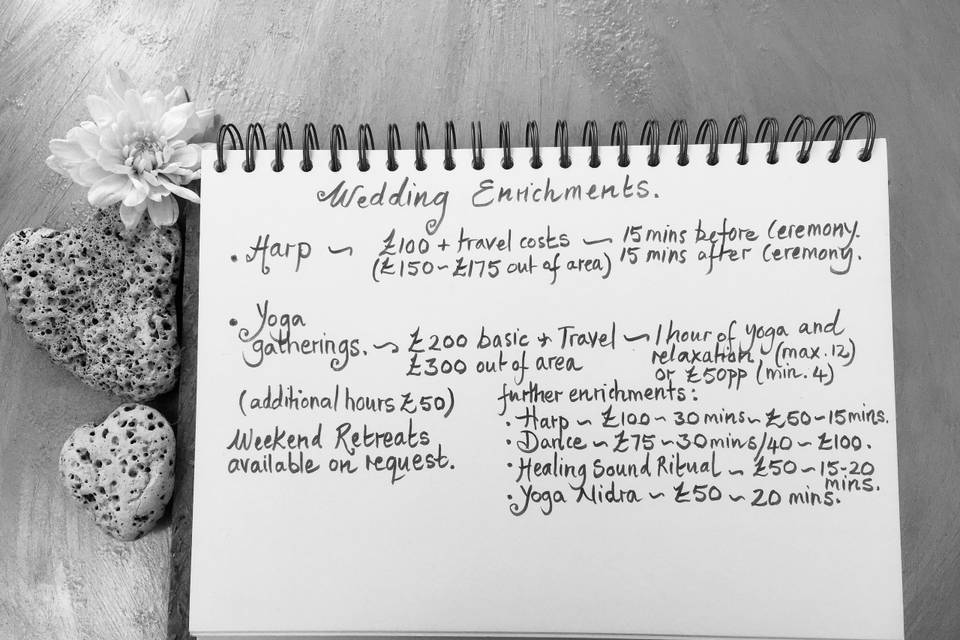 Wedding Enrichments.
• Harp ~ £100 + travel costs ~ 15 mins before Ceremony.
(£150~£175 out of area) 15 mins after Ceremony.
• Yoga
gatherings. ~ £200 basic + Travel ~ 1 hour of yoga and
£300 out of area relaxation. (max.12)
or £50pp (min. 4)
(additional hours £50)
further enrichments:
• Harp ~ £100 ~ 30 mins ~ £50 ~ 15 mins.
• Dance ~ £75 ~ 30 mins/40 ~ £100.
• Healing Sound Ritual ~ £50 ~ 15-20
mins.
• Yoga Nidra ~ £50 ~ 20 mins.
Weekend Retreats
available on request.